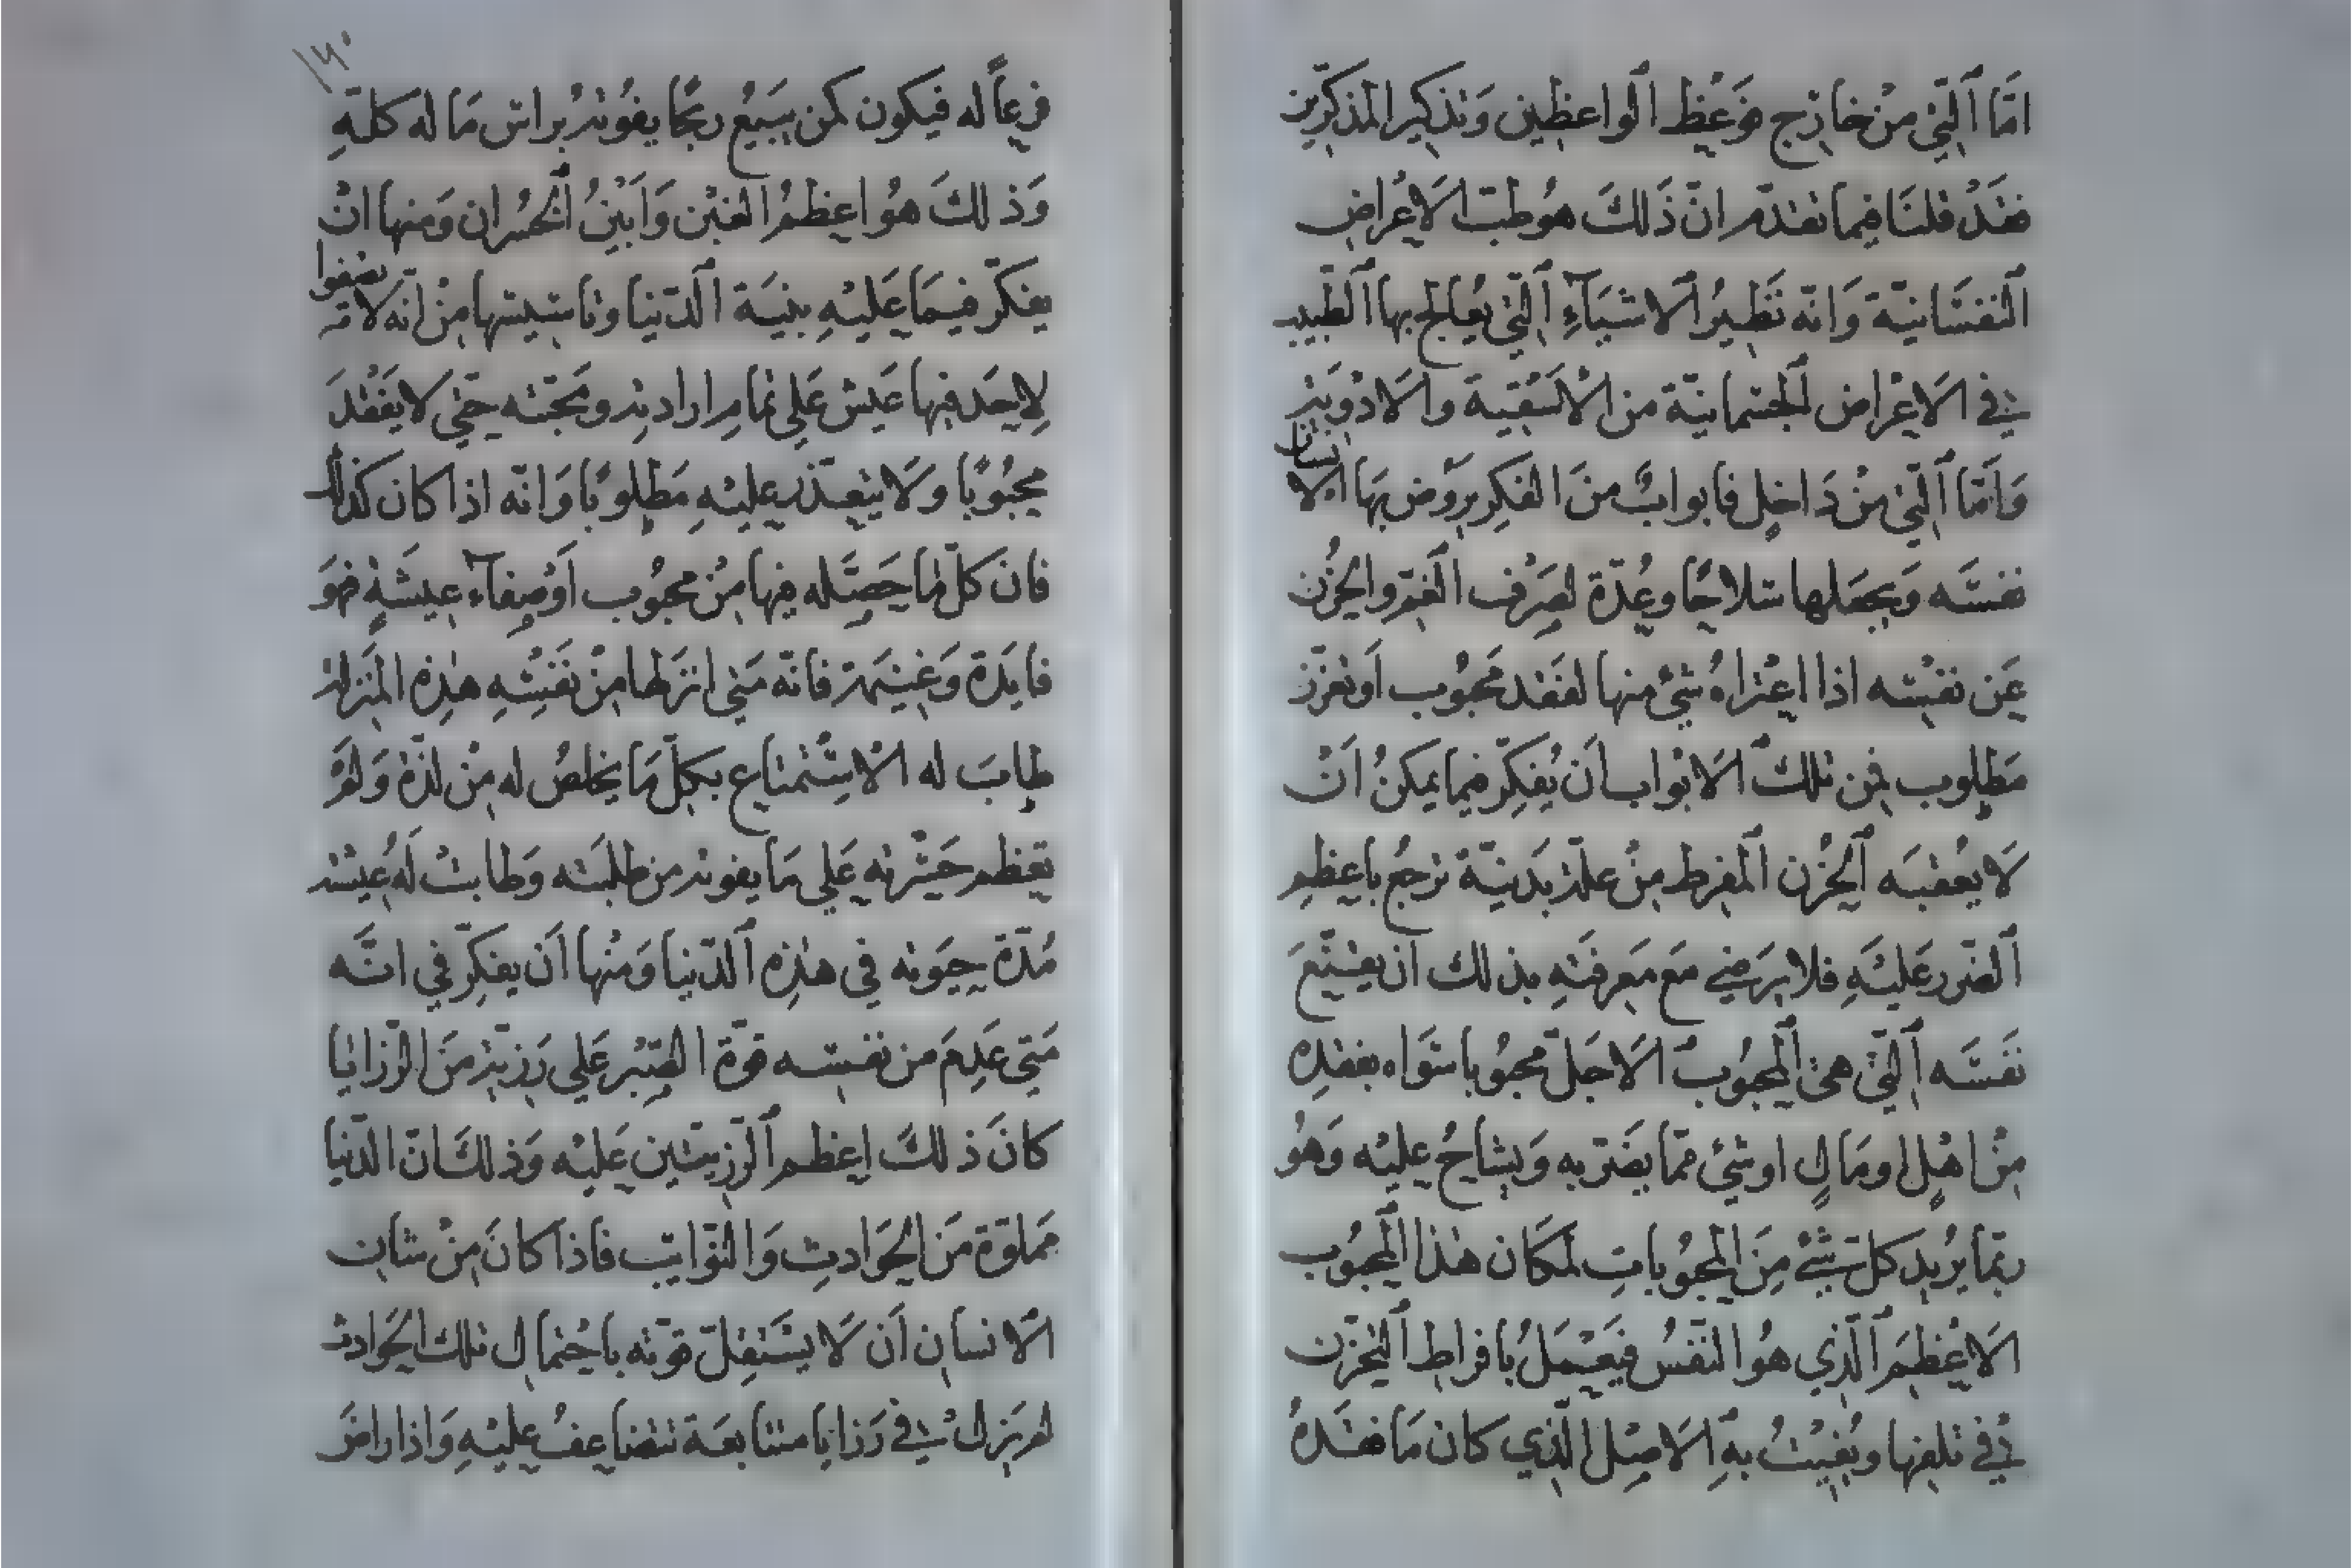 امّا ٱلّتي من خارج فوعظ ٱلواعظين وتذكير المذكّرين
فقد قلنا فيما تقدّم انّ ذلك هو طبّ الاعراض
ٱلنفسانيّة وانّه نظير الاشياءِ ٱلتي يعالج بها ٱلطبيب
في الاعراض ٱلجسمانيّة من الاسقية والادوية
وامّا ٱلتي من داخل فابوابٌ من الفكر يروّض بها الانسان
نفسه ويجعلها سلاحًا وعُدّة لصرف ٱلغمّ والحزن
عن نفسه اذا اعتراهُ شيءٌ منها لفقد محبوب او تعزّز
مطلوب فمن تلك الابواب أن يُفكّر فيما يمكنُ انْ
لا يعقبه ٱلحُزن ٱلمفرط من علّة بدنيّة ترجعُ باعظم
ٱلضرر عليهِ فلا يرضي مع معرفتهِ بذلك ان يفجّع
نفسه ٱلتي هي ٱلمحبوبُ الاجلّ محبوبا سواه بفقدِه
من اهل او مال او شيءٍ ممّا يضرّ به ويشاحّ عليه وهُو
ربّما يريد كلّ شيءٍ من المحبوبات لمكان هذا المحبوب
الاعظم ٱلّذي هو النّفسُ فيعمل بافراط ٱلتحزّن
في تلفها ويُفيتُ بهِ الاصل الّذي كان ما فقدهُ
١٢٠
فرعاً له فيكون كمن يبيع ربحًا يفوته براس ما له كلّهِ
وذلك هو اعظمُ الغبْن وابينُ ٱلخسران ومنها انْ
يفكّر فيما عليهِ بنية ٱلدّنيا وتاسيسها من انّه لا تصفوا
لاحد فيها عيش علي تمام اِرادته ومحبّته حتّي لا يفقدَ
محبُوبًا ولا يتعذّر عليهِ مطلوبًا وانّه اذا كان كذلك
فان كلّ ما حصّله فيها من محبُوب أو صفآء عيشهٍ فهو
فايدة وغنيمة فانّه متي انزلها من نفسِهِ هذِه المنزلة
طاب له الاستمتاع بكلّ ما يخلصُ له من لذّة ولم
تعظم حسرته علي ما يفوته من طلبته وطابتْ له عيشته
مُدّة حيوته في هذِه ٱلدّنيا ومنها أن يفكّر في انّه
متي عدِم من نفسه قوّة الصّبر علي رزيّة من الرّزايا
كان ذلك اعظم ٱلرّزيّتين عليه وذلك انّ الدّنيا
مملوّة من الحوادثِ والنّوايب فاذا كان من شان
الانسان أن لا يستقلّ قوّته باحتمال تلك الحوادث
لم يزل في رزايا متتابعة تتضاعفُ عليهِ واذا راض